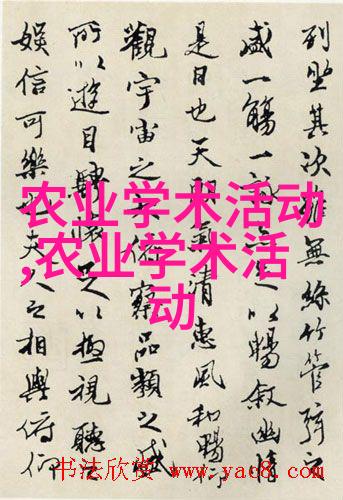 列坐其次雖無絲竹管弦之
盛一觴一詠亦足以暢敘幽情
是日也天朗氣清惠風和暢仰
觀宇宙之大俯察品類之盛
所以遊目騁懷足以極視聽之
娛信可樂也夫人之相與俯仰
农业学术活动
,农业学术活
动
书法欣赏 www.yac8.com